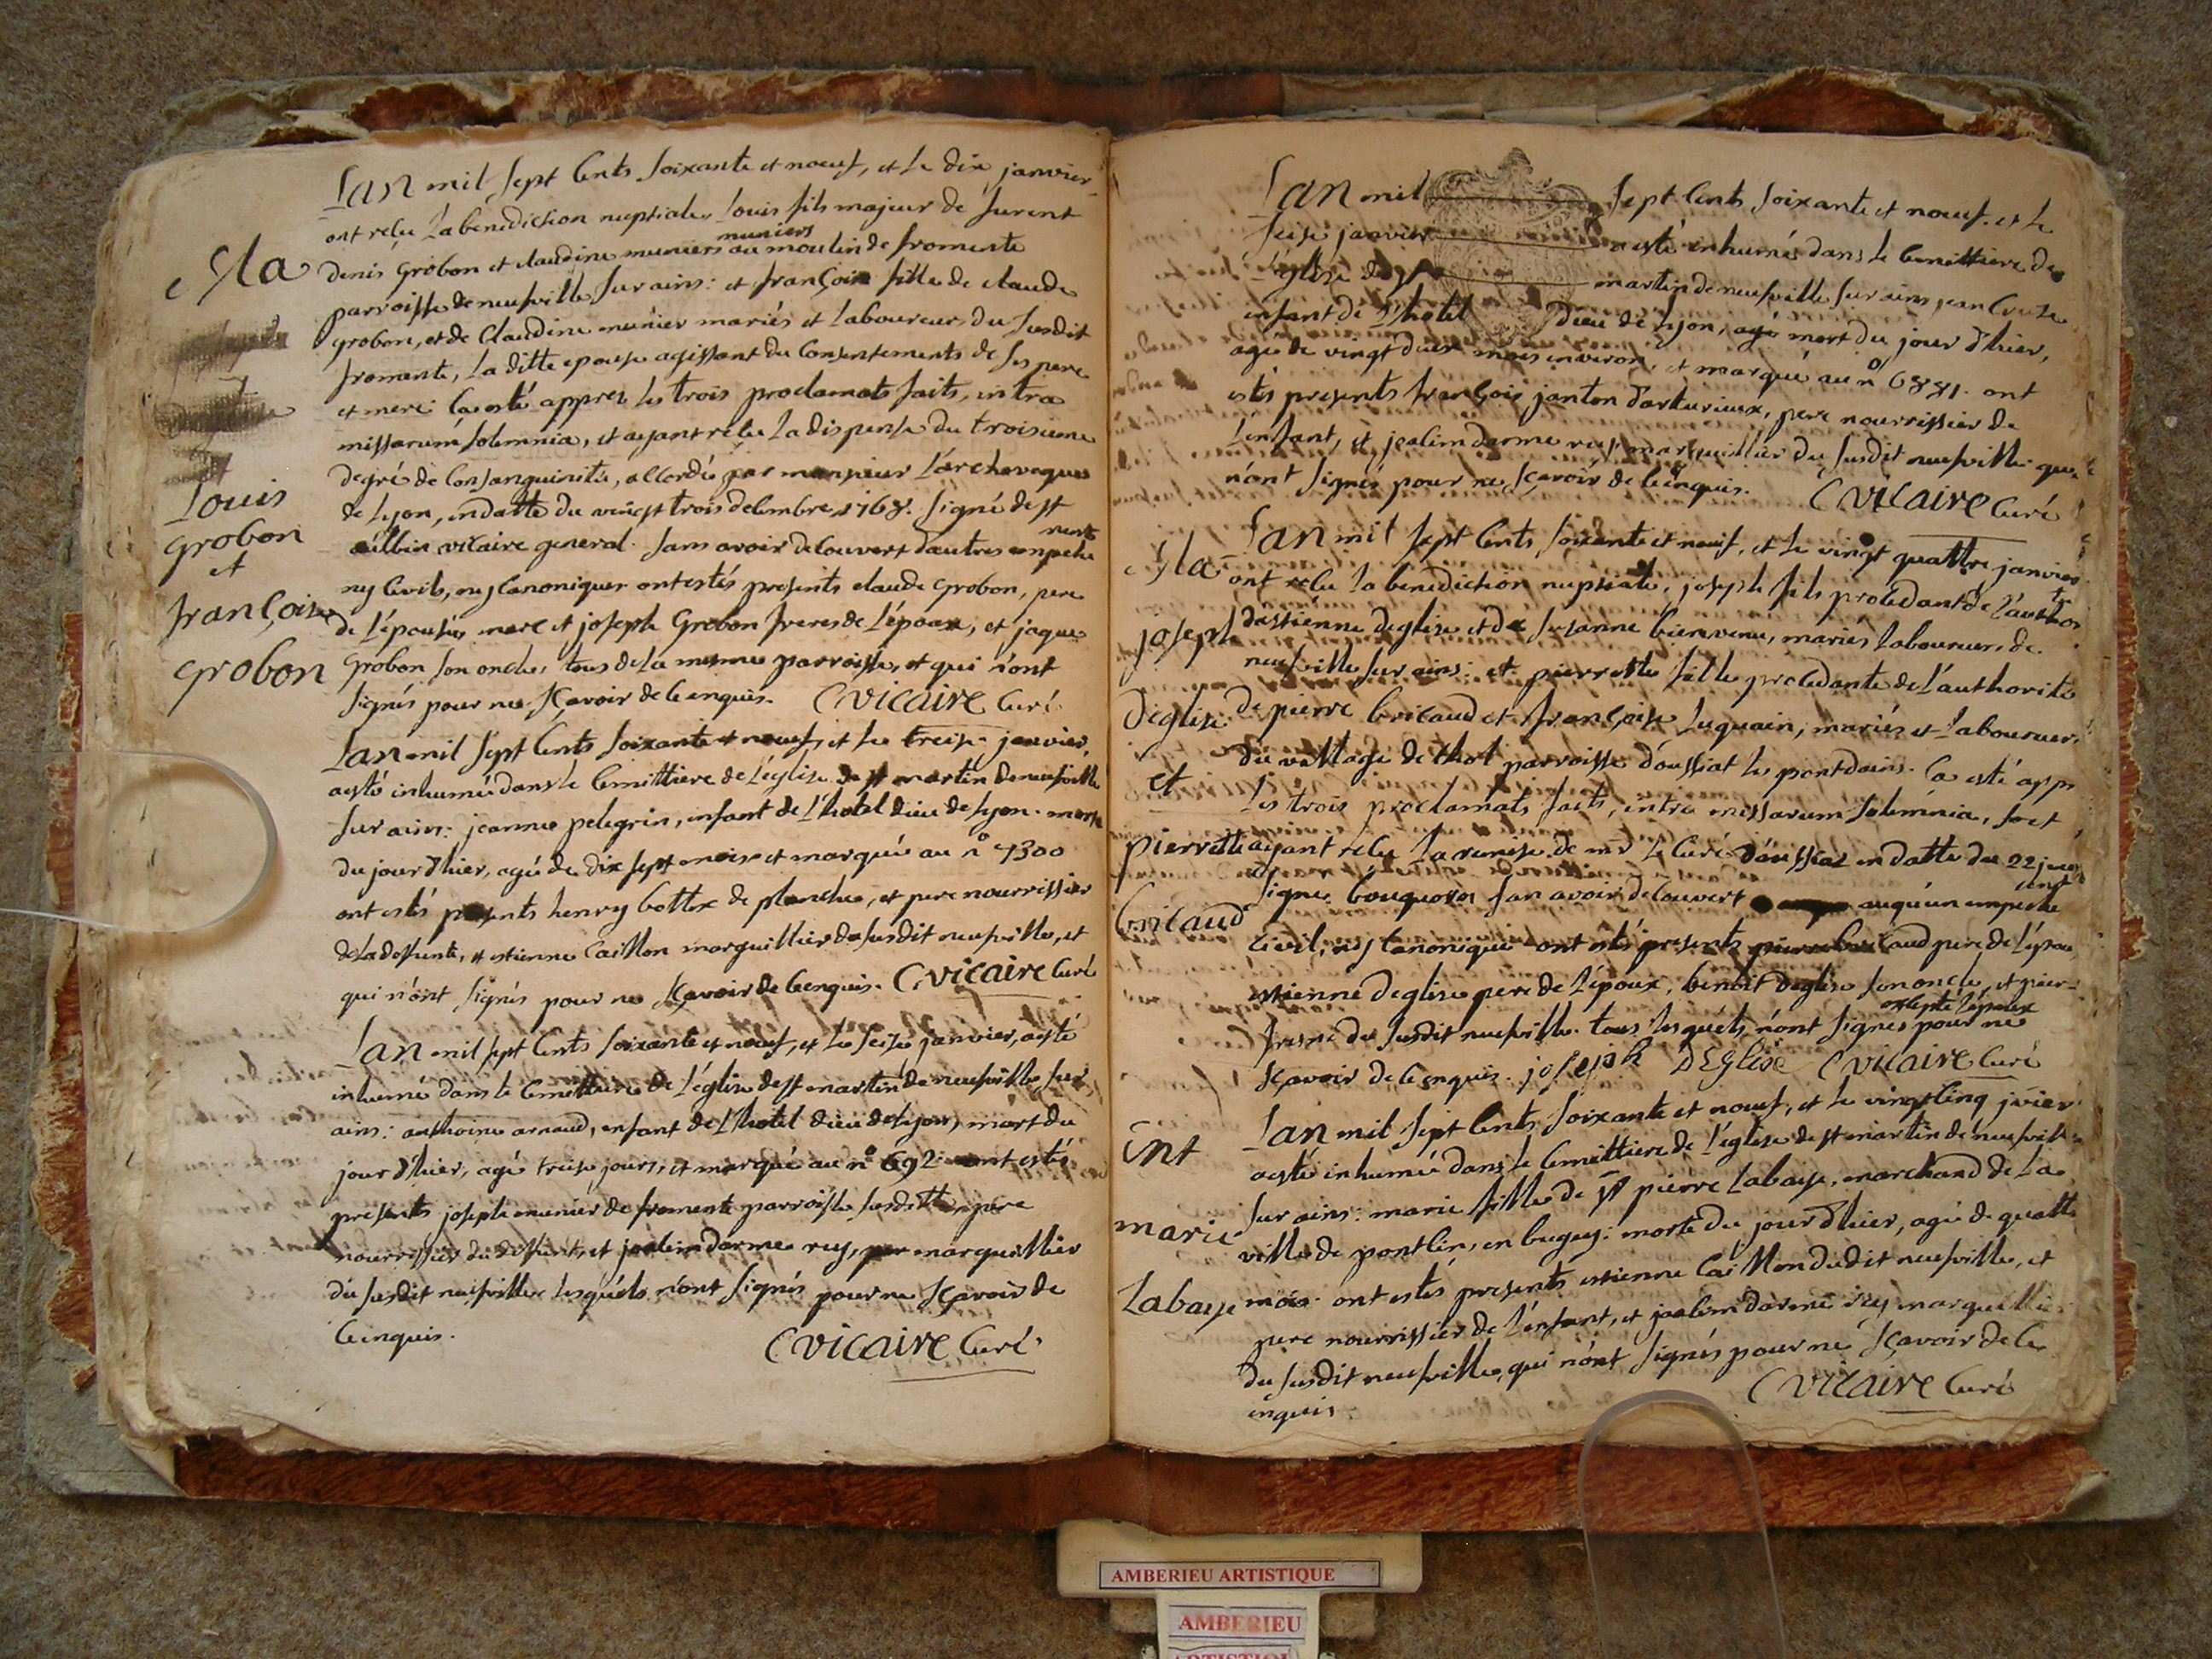 Lan mil sept cents soixante et noeuf, et le dix janvier
ont reçu la benediction nuptiale, Louis fils majeur de furent
muniers
denis Grobon et claudine muniers au moulin de fromente
Mla
parroisse de neufville sur ains: et françoise fille de claude
grobon, et de Claudine meunier mariés et laboureurs du susdit
fromente, la ditte epouse agissant du consentements de ses pere
et mere. Ça esté appres les trois proclamats faits, intra
missarum solemnia, et ayant reçu la dispense du troisieme
degré de consanguinité, accordée par monsieur L'archeveque
de Lyon, en datte du vingt trois decembre 1768. signé de st
Louis
grobon
et
françoise
grobon
aulbin vicaire general. sans avoir decouvert d'autres empeche
ments
ny civils, ny canoniques ont estés presents claude grobon, pere
de l'épouse, marc et joseph Grobon freres de l'époux, et jaques
Grobon son oncle, tous de la mesme parroisse, et qui n'ont
signés pour ne sçavoir de ce enquis. C vicaire Curé
Lan mil sept cents soixante et noeuf, et le treise janvier,
a esté inhumée dans le cemittiere de l'église de st martin de neufville
sur ains: jeanne pelegrin, infant de l'hotel dieu de Lyon. morte
du jour d'hier, agée de dix sept mois et marquée au n° 7300
ont estés presents henry bottex de planche, et pere nourrissier
de la deffunte, et estienne Caillon marguillier du susdit neufville, et
qui n'ont signés pour ne sçavoir de ce enquis. C vicaire Curé
Lan mil sept cents soixante et noeuf, et le seize janvier, a esté
inhumé dans le cemittiere de l'église de st martin de neufville sur
ains: anthoine arnaud, enfant de l'hotel dieu de Lyon, mort du
jour d'hier, agé treise jours, et marqué au n° 692. ont estés
presents joseph munier de fromente parroisse susditte, pere
nourrissier du deffunt, et joalim darme rey, marguillier
du susdit neufville lesquels n'ont signés pour ne sçavoir de
ce enquis. C vicaire Curé
Lan mil sept cents soixante et noeuf. et le
seise janvier a esté inhumé dans le cemittiere de
l'église de st martin de neufville sur ains jean Croze
infant de l'hotel Dieu de Lyon, agé mort du jour d'hier,
agé de vingt deux mois environ, et marqué au n° 6881. ont
estés presents françois janton d'arturieux, pere nourrissier de
l'infant, et joalim darme rey marguillier du susdit neufville qui
n'ont signés pour ne sçavoir de ce enquis. C vicaire Curé
Lan mil sept cents soixante et noeuf, et le vingt quattre janvier
Mla
ont reçu la benediction nuptiale, joseph fils procedant de l'autho
té
joseph
d'estienne deglise et de susanne bienvenu, mariés laboureurs de
neufville sur ains: et pierrette fille procedante de l'authorité
deglise
de pierre bricaud et françoise Luquain, mariés et laboureurs
du vollage de thol parroisse d'oussiat les pontdains. Ça esté appr
et
les trois proclamats faits, intra missarum solemnia, soet
pierrette
ayant reçu la remise de mr le Curé d'oussiat en datte du 22 janv
bricaud
signe bouquoren san avoir decouvert auqu'un empeche
ment
civil, ny canonique ont estés presents pierre bricaud pere de l'epou
estienne deglise pere de l'époux, benoit deglise son oncle, et pier
fresne du susdit neufville. tous lesquels n'ont signés pour ne
excepté l'epoux
sçavoir de ce enquis. joseph DEGLise C vicaire Curé
Lan mil sept cents soixante et noeuf, et le vingt cinq jvier
ent
a esté inhumée dans le cemittiere de l'église de st martin de neufvill
marie
sur ains: marie fille de sr pierre Labaye, marchand de la
ville de pontcin, en bugey: morte du jour d'hier, agée de quatte
Labaye
mois. ont estés presents estienne Caillon dudit neufville, et
pere nourrissier de l'enfant, et joalim darme rey marguillier
du susdit neufville, qui n'ont signés pour ne sçavoir de ce
enquis. C vicaire Curé
AMBERIEU ARTISTIQUE
AMBERIEU
ARTISTIQUE